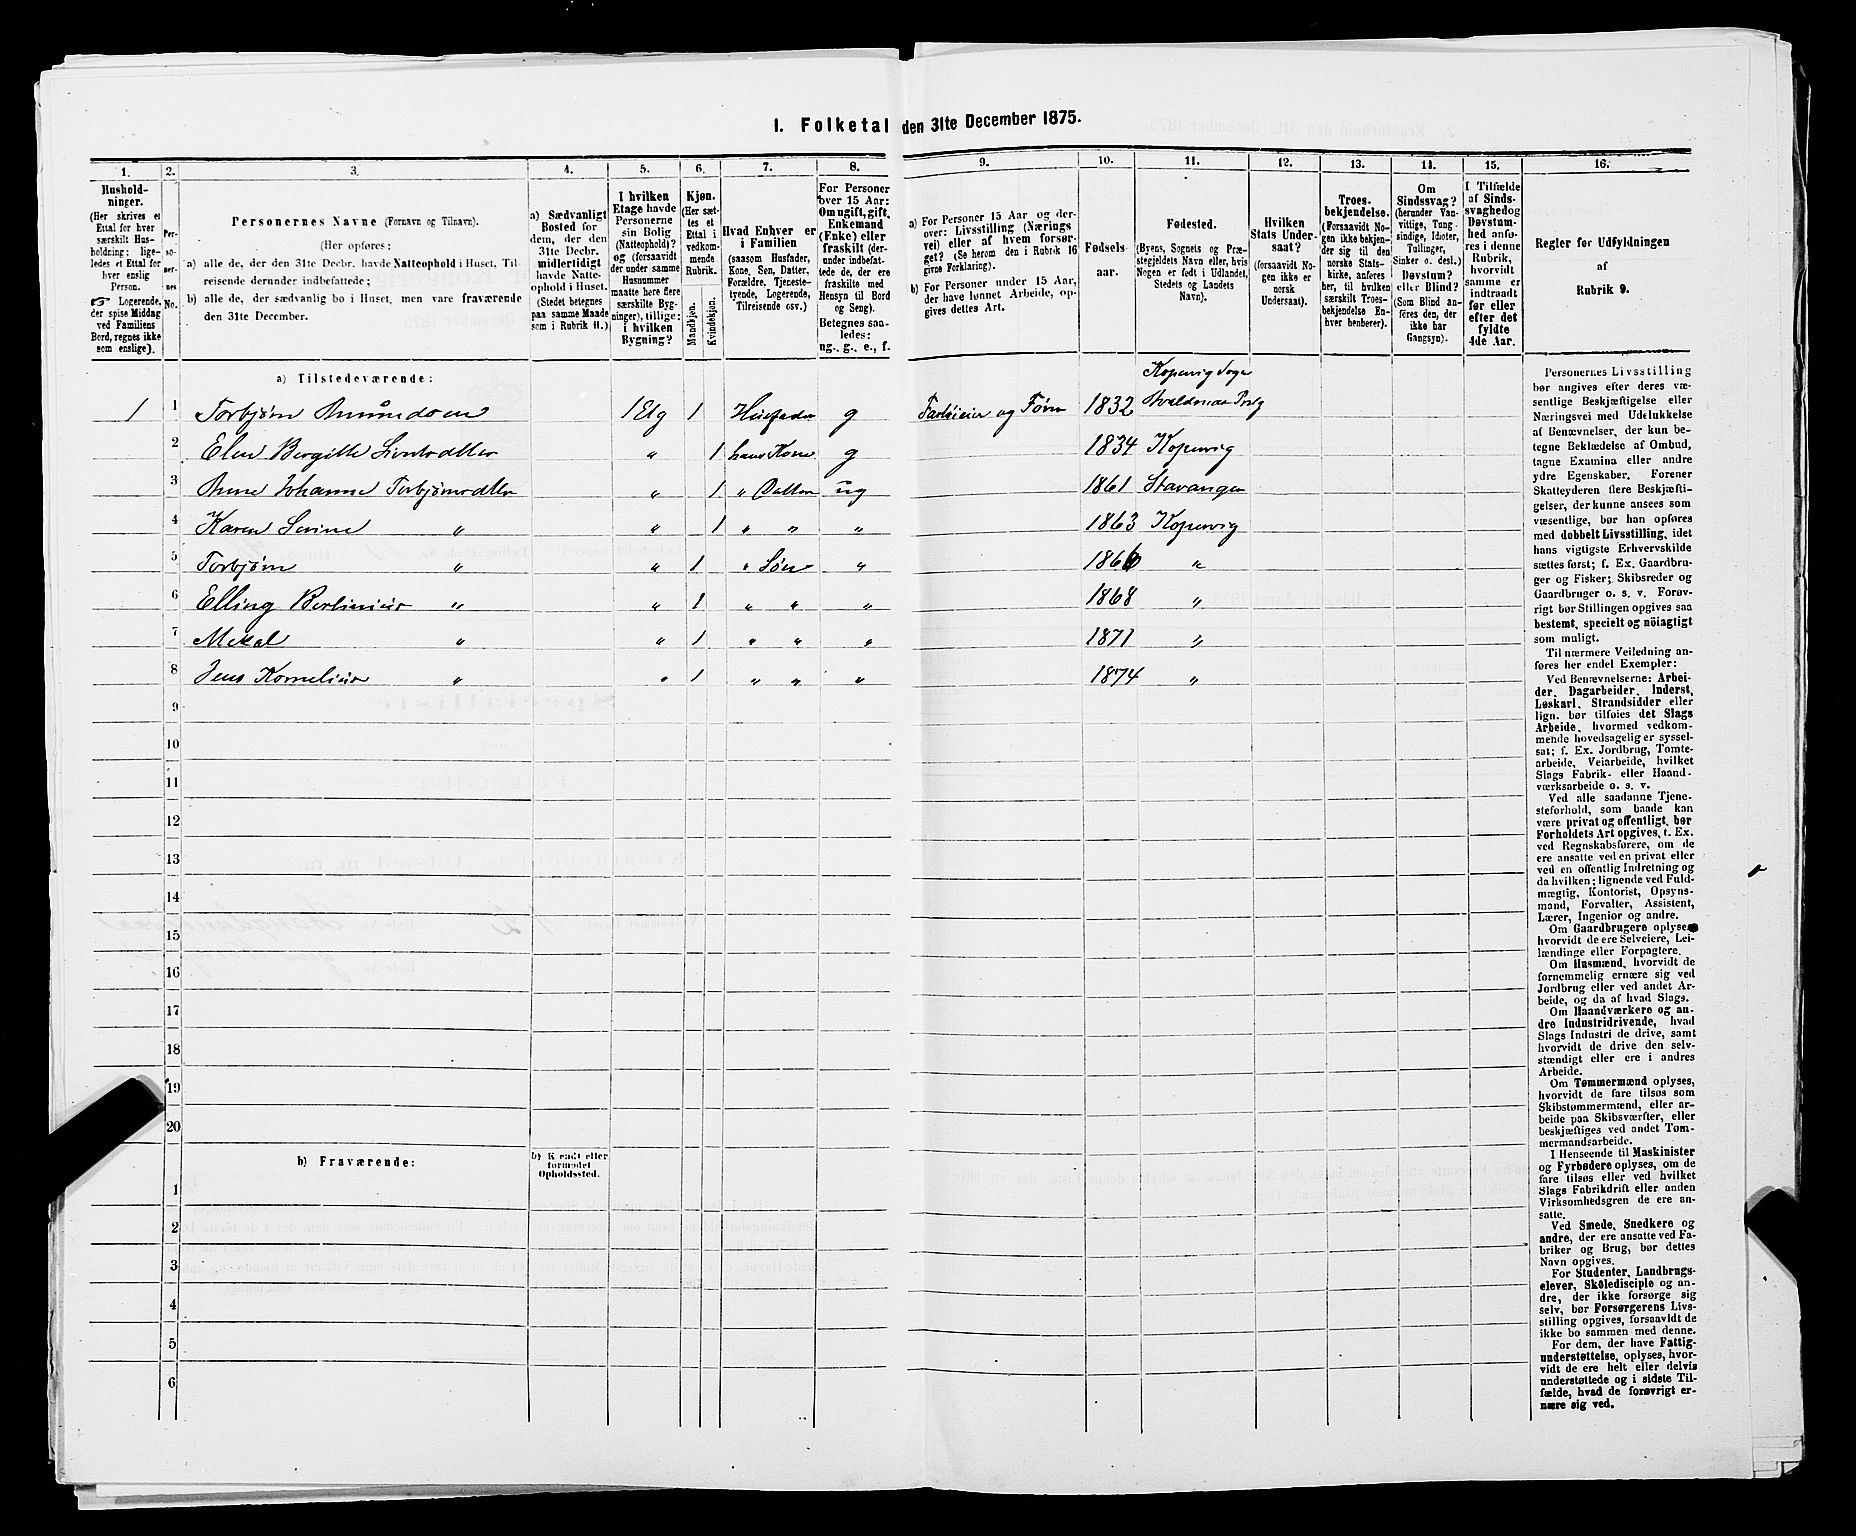 1. Folketal den 31te December 1875.
1. 2. 3. 4. 5. 6. 7. 8. 9. 10. 11. 12. 13. 14. 15. 16.
Hushold-
ninger.
(Her skrives et
Ettal for hver
særskilt Hus-
holdning; lige-
ledes et Ettal for
hver enslig
Person.
☞ Logerende,
der spise Middag
ved Familiens
Bord, regnes ikke
som enslige).
Per-
so-
ner-
nes
No.
Personernes Navne (Fornavn og Tilnavn).
(Her opføres:
a) alle de, der den 31te Decbr. havde Natteophold i Huset, Til-
reisende derunder indbefattede;
b) alle de, der sædvanlig bo i Huset, men vare fraværende
den 31te December.
a) Sædvanligt
Bosted for
dem, der den
31te Decbr.
midlertidigt
havde Natte-
ophold i Huset.
(Stedet betegnes
paa samme Maade
som i Rubrik 11.)
I hvilken
Etage havde
Personerne
sin Bolig
(Natteophold)?
og (forsaavidt
der under samme
Husnummer
maatte høre flere
særskilte Byg-
ninger), tillige:
i hvilken
Bygning?
Kjøn.
(Her sæt-
tes et
Ettal i
vedkom-
mende
Rubrik.
Mandkjøn.
Kvindekjøn.
Hvad Enhver er
i Familien
(saasom Husfader,
Kone, Søn, Datter,
Forældre, Tjeneste-
tyende, Logerende,
Tilreisende osv.)
For Personer
over 15 Aar:
Om ugift, gift,
Enkemand
(Enke) eller
fraskilt (der-
under indbefat-
tede de, der ere
fraskilte med
Hensyn til Bord
og Seng).
Betegnes saa-
ledes:
ug., g., e., f.
a) For Personer 15 Aar og der-
over: Livsstilling (Nærings-
vei) eller af hvem forsør-
get? (Se herom den i Rubrik 16
givne Forklaring).
b) For Personer under 15 Aar,
der have lønnet Arbeide, op-
gives dettes Art.
Fødsels-
aar.
Fødested.
(Byens, Sognets og Præ-
stegjeldets Navn eller, hvis
Nogen er født i Udlandet,
Stedets og Landets
Navn).
Hvilken
Stats Under-
saat?
(forsaavidt No-
gen ikke er
norsk
Undersaat).
Troes-
bekjendelse.
(Forsaavidt No-
gen ikke bekjen-
der sig til den
norske Stats-
kirke, anføres
her, til hvilken
særskilt Troes-
bekjendelse En-
hver henhører).
Om
Sindssvag?
(herunder Van-
vittige, Tung-
sindige, Idioter,
Tullinger,
Sinker o. desl.)
Døvstum?
eller Blind?
(Som Blind an-
føres den, der
ikke har
Gangsyn).
I Tilfælde
af Sinds-
svaghed og
Døvstum-
hed anfø-
res i denne
Rubrik,
hvorvidt
samme er
indtraadt
før eller
efter det
fyldte
4de Aar.
Regler for Udfyldningen
af
Rubrik 9.
a) Tilstedeværende:
Kopervig Sogn
1 1 Torbjørn Amundsen 1 Etg 1 Husfader g og 1832
2 Elen Bergitte „ 1 hans Kone g 1834 Kopervig
3 Anne Johanne Torbjørnsdtter „ 1 „ Datter ug 1861 Stavanger
4 Karen Serine „ „ 1 „ „ „ 1863 Kopervig
5 Torbjørn „ „ 1 „ Søn „ 1866 „
6 Elling Bertinius „ „ 1 „ „ „ 1868 „
7 Mekal „ „ 1 „ „ „ 1871 „
8 Jens Kornelius „ „ 1 „ „ „ 1874 „
9
10
11
12
13
14
15
16
17
18
19
20
b) Fraværende: b) Kjendt eller
formodet
Opholdssted.
1
2
3
4
5
6
Personernes Livsstilling
bør angives efter deres væ-
sentlige Beskjæftigelse eller
Næringsvei med Udelukkelse
af Benævnelser, der kun be-
tegne Beklædelse af Ombud,
tagne Examina eller andre
ydre Egenskaber. Forener
Skatteyderen flere Beskjæfti-
gelser, der kunne ansees som
væsentlige, bør han opføres
med dobbelt Livsstilling, idet
hans vigtigste Erhvervskilde
sættes først; f. Ex. Gaardbru-
ger og Fisker; Skibsreder og
Gaardbruger o. s. v. Forøv-
rigt bør Stillingen opgives saa
bestemt, specielt og nöiagtigt
som muligt.
Til nærmere Veiledning an-
føres her endel Exempler:
Ved Benævnelserne: Arbei-
der, Dagarbeider, Inderst,
Løskarl, Strandsidder eller
lign. bør tilføies det Slags
Arbeide, hvormed vedkom-
mende hovedsagelig er syssel-
sat; f. Ex. Jordbrug, Tomte-
arbeide, Veiarbeide, hvilket
Slags Fabrik- eller Haand-
værksarbeide o. s. v.
Ved alle saadanne Tjene-
steforhold, som baade kan
være privat og offentligt, bør
Forholdets Art opgives, t. Ex.
ved Regnskabsførere, om de
ere ansatte ved en privat eller
ved en offentlig Indretning og
da hvilken; lignende ved Fuld-
mægtig, Kontorist, Opsyns-
mand, Forvalter, Assistent,
Lærer, Ingeniør og andre.
Om Gaardbrugere oplyses,
hvorvidt de ere Selveiere, Lei-
lændinge eller Forpagtere.
Om Husmænd, hvorvidt de
fornemmelig ernære sig ved
Jordbrug eller ved andet Ar-
beide, og da af hvad Slags.
Om Haandværkere og an-
dre Industridrivende, hvad
Slags Industri de drive, samt
hvorvidt de drive den selv-
stændigt eller ere i andres
Arbeide.
Om Tømmermænd oplyses,
hvorvidt de fare tilsøs som
Skibstømmermænd, eller ar-
beide paa Skibsværfter, eller
beskjæftiges ved andet Tøm-
mermandsarbeide.
I Henseende til Maskinister
og Fyrbødere oplyses, om de
fare tilsøs eller ved hvilket
Slags Fabrikdrift eller anden
Virksomhedsgren de ere an-
satte.
Ved Smede, Snedkere og
andre, der ere ansatte ved Fa-
briker og Brug, bør dettes
Navn opgives.
For Studenter, Landbrugs-
elever, Skoledisciple og an-
dre, der ikke forsørge sig
selv, bør Forsørgerens Livs-
stilling opgives, forsaavidt de
ikke bo sammen med denne.
For dem, der have Fattig-
understøttelse, oplyses, hvor-
vidt de ere helt eller delvis
understøttede og i sidste Til-
fælde, hvad de forøvrigt er-
nære sig ved.